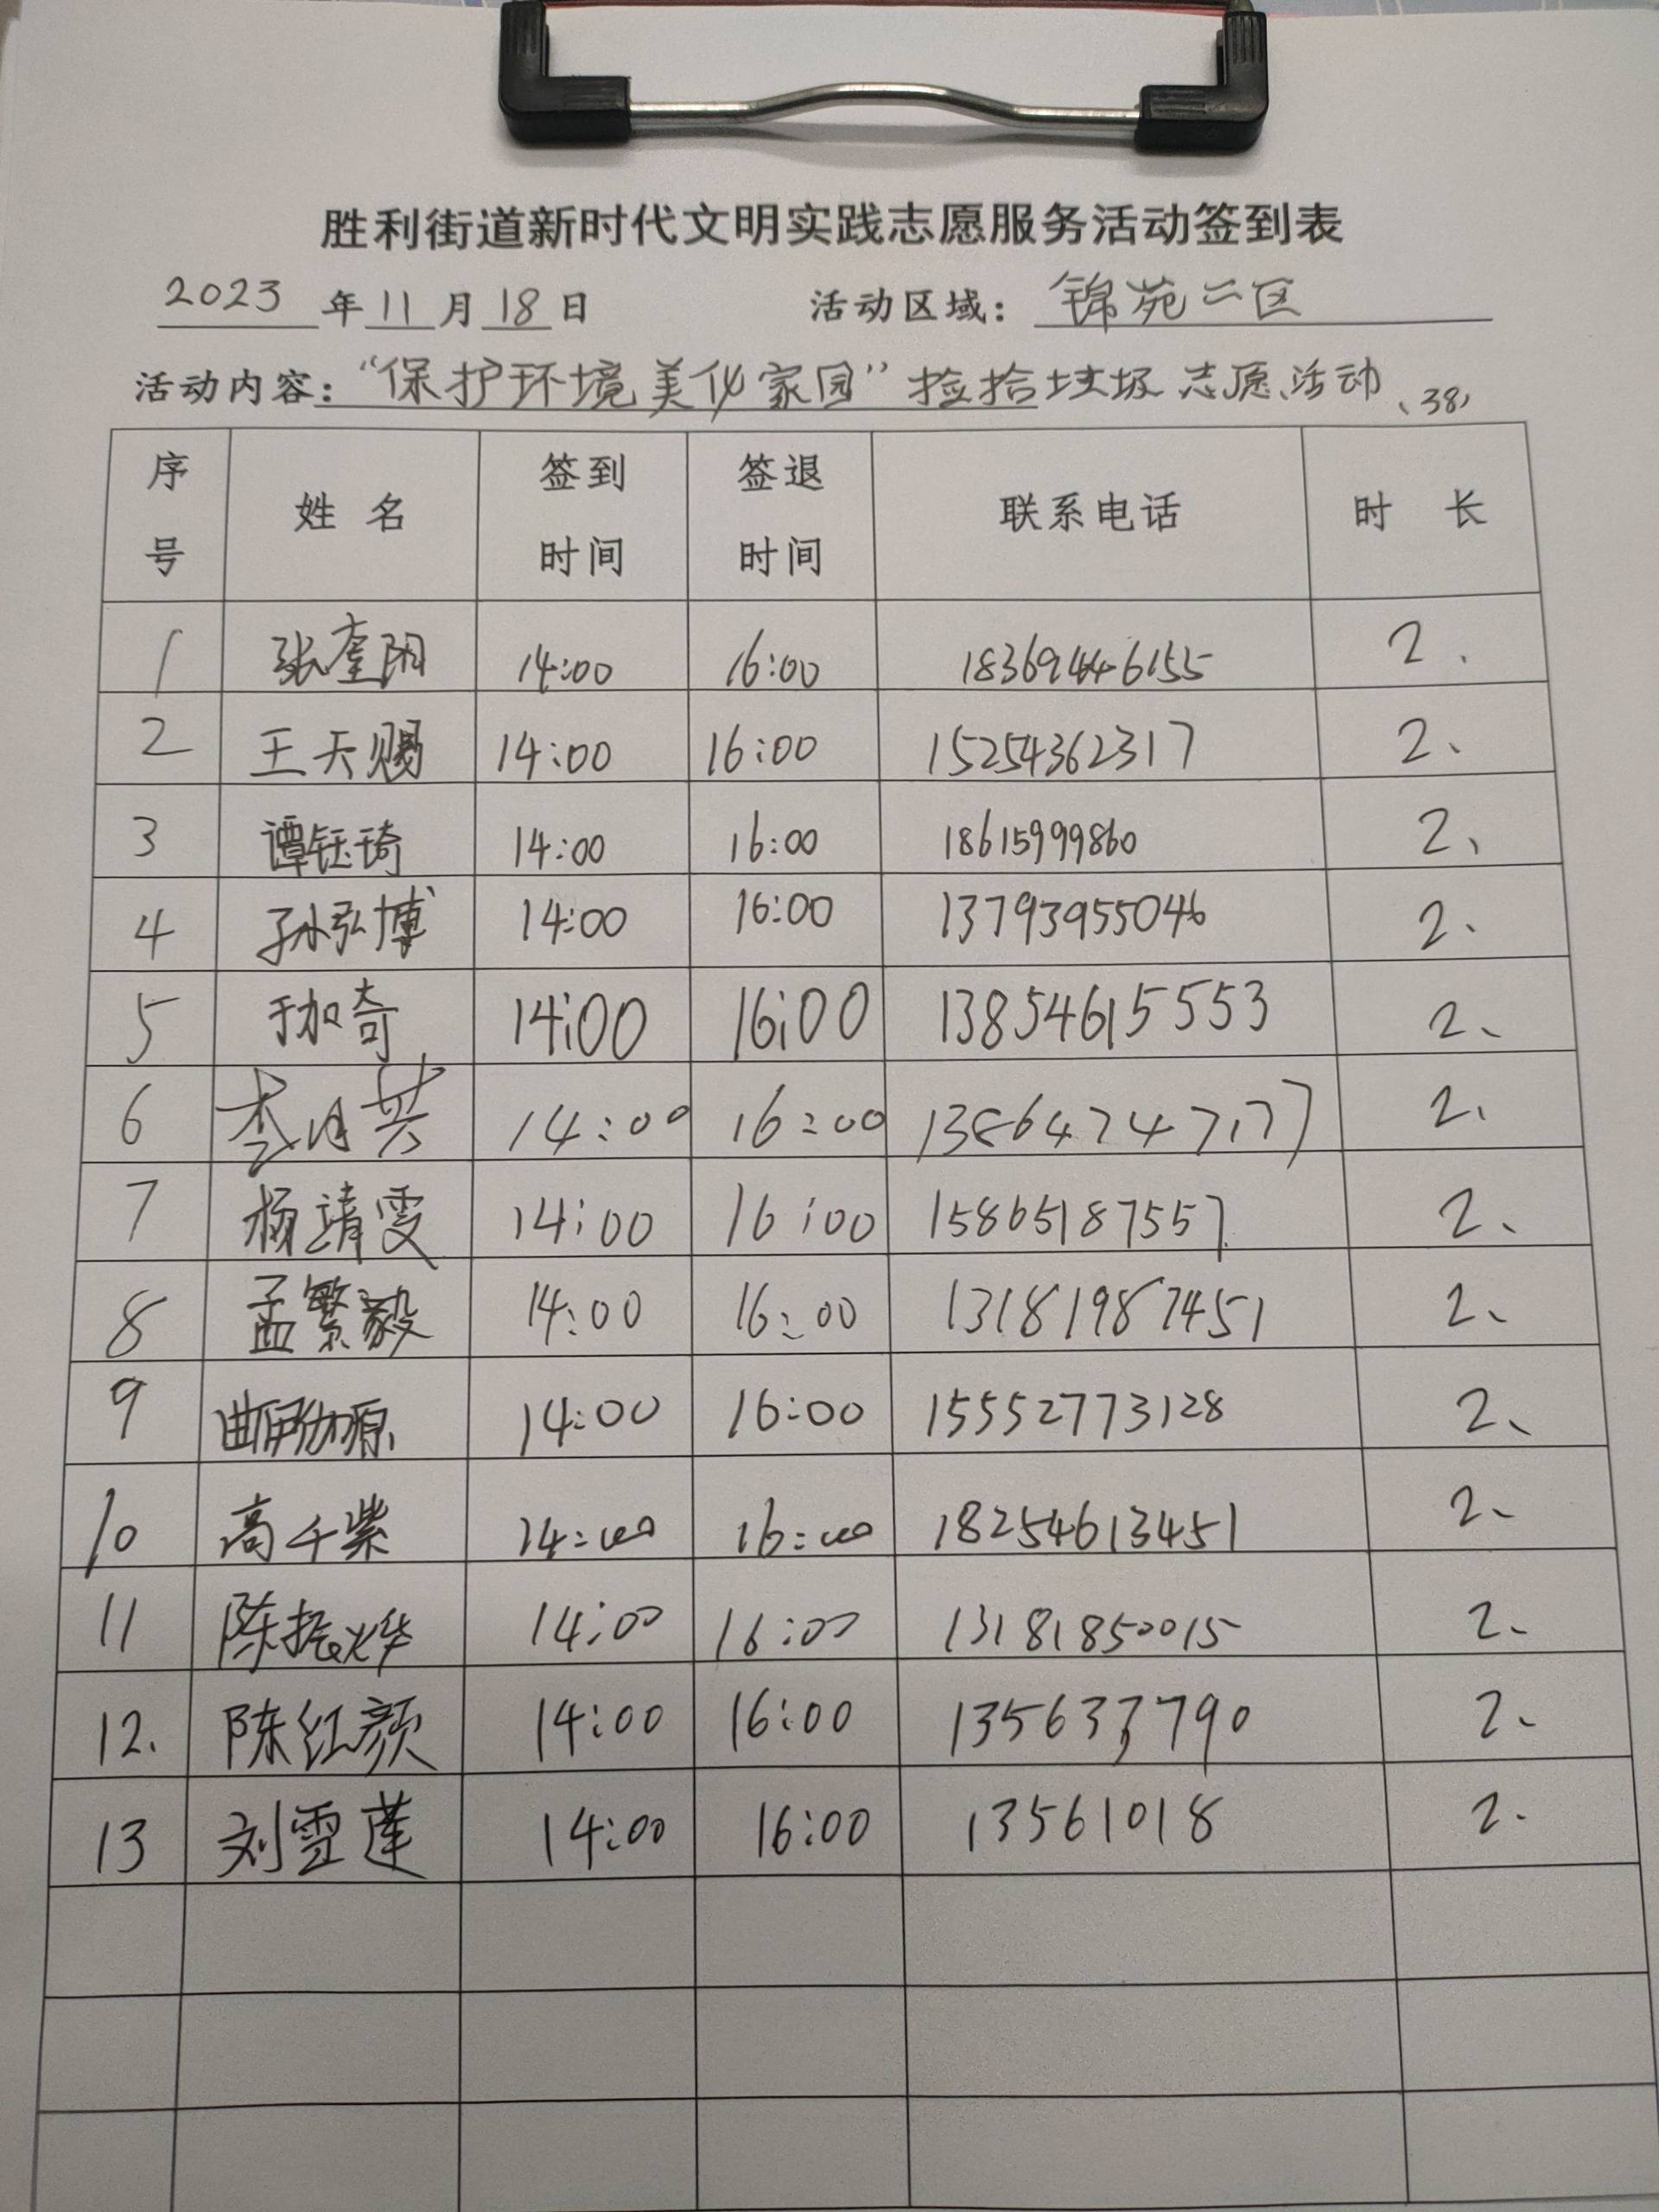 胜利街道新时代文明实践志愿服务活动签到表
2023 年 11 月 18 日 活动区域： 锦苑二区
活动内容：“保护环境美化家园”捡拾垃圾志愿活动、38）
序号 姓名 签到时间 签退时间 联系电话 时长
1 张奎阳 14:00 16:00 18369446155 2、
2 王天赐 14:00 16:00 15254362317 2、
3 谭钰琦 14:00 16:00 18615999860 2、
4 孙弘博 14:00 16:00 13793955046 2、
5 于加奇 14:00 16:00 13854615553 2、
6 李月芸 14:00 16:00 2、
7 杨靖雯 14:00 16:00 15865187557 2、
8 孟繁毅 14:00 16:00 13181987451 2、
9 14:00 16:00 15552773128 2、
10 高千紫 14:00 16:00 18254613451 2、
11 陈振烨 14:00 16:00 13181850015 2、
12. 陈红颜 14:00 16:00 135633790 2、
13 刘雪莲 14:00 16:00 13561018 2、